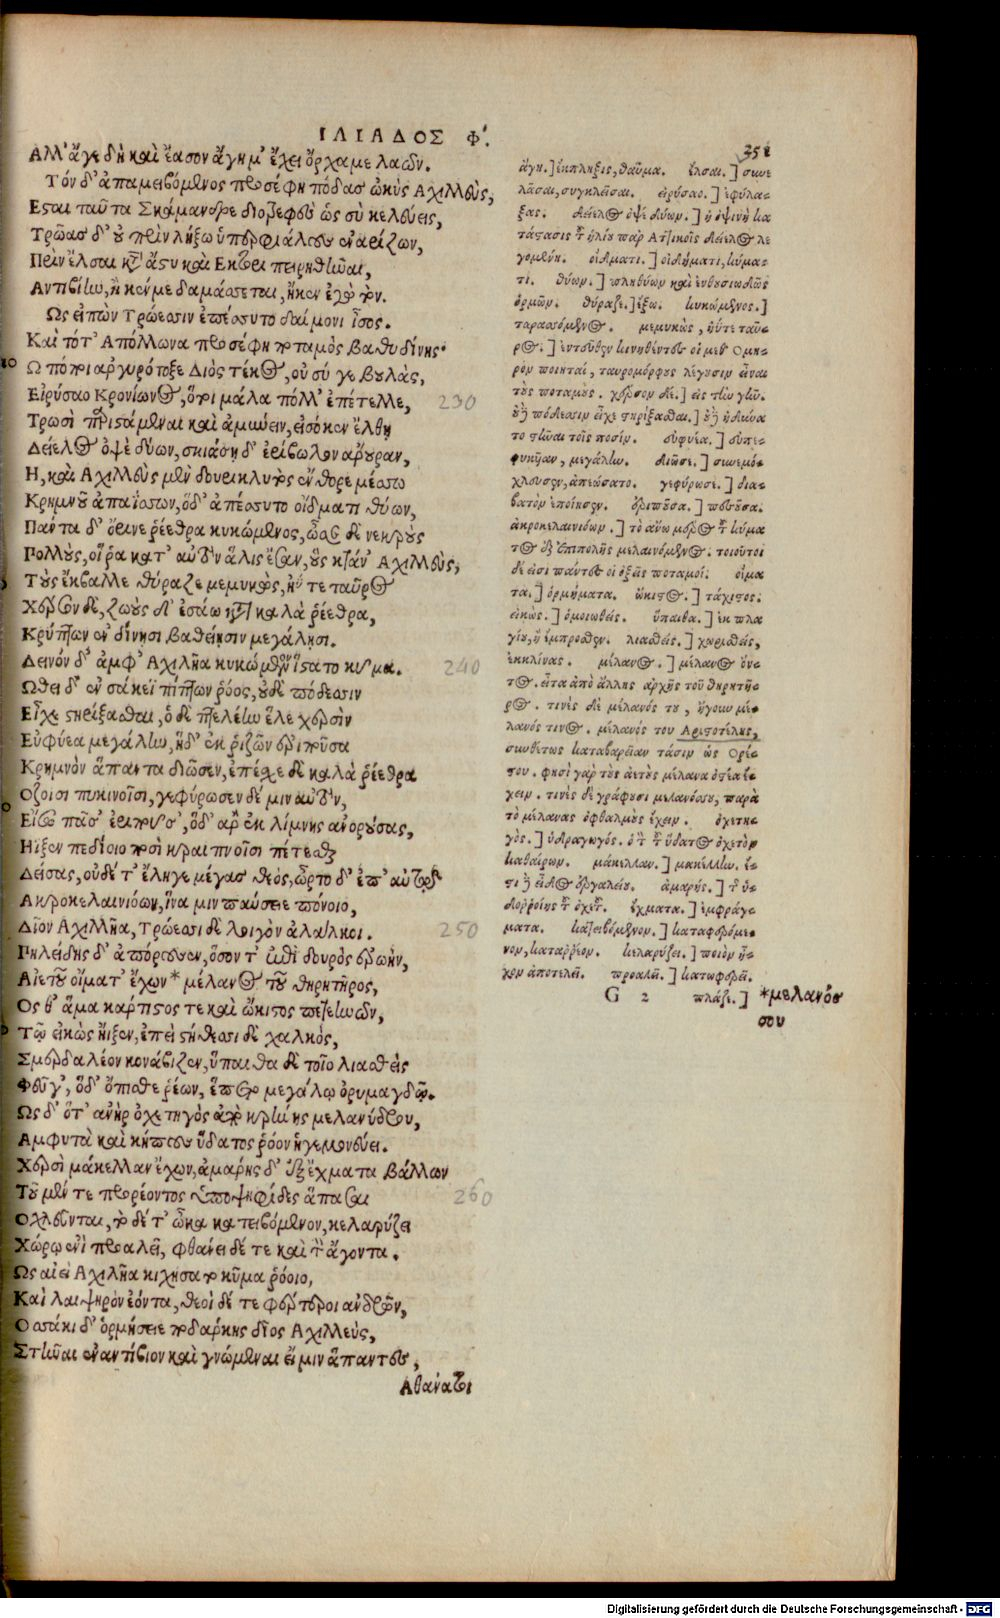 ΙΛΙΑΔΟΣ Φ.
351
Αλλ' ἄγε δὴ καὶ ἔασον ἄγη μ' ἔχει ὄρχαμε λαῶν.
Τὸν δ' ἀπαμειβόμενος προσέφη πόδας ὠκὺς Αχιλλεὺς,
Εσται ταῦτα Σκάμανδρε διοτρεφὲς ὡς σὺ κελεύεις,
Τρῶας δ' οὐ πρὶν λήξω ὑπερφιάλους ἐναρίζων,
Πρὶν ἔλσαι κατὰ ἄστυ καὶ Εκτορι πειρηθῆναι,
Αντιβίην, ἤ κέν με δαμάσσεται, ἤ κεν ἐγὼ τόν.
Ως εἰπὼν Τρώεσσιν ἐπέσσυτο δαίμονι ἶσος.
Καὶ τότ' Απόλλωνα προσέφη ποταμὸς βαθυδίνης·
Ω πόποι ἀργυρότοξε Διὸς τέκος, οὐ σύ γε βουλὰς,
Εἰρύσαο Κρονίωνος, ὅτοι μάλα πόλλ' ἐπέτελλε, 230
Τρωσὶ παριστάμεναι καὶ ἀμύνειν, εἰσόκεν ἔλθῃ
Δείελος ὀψὲ δύων, σκιάσῃ δ' ἐρίβωλον ἄρουραν,
Η, καὶ Αχιλλεὺς μὲν δουρικλυτὸς ἔνθορε μέσσῳ
Κρημνοῦ ἀπαΐσσων, ὅδ' ἀπέσσυτο οἴδματι θύων,
Πάντα δ' ὄρινε ῥέεθρα κυκώμενος, ὦσε δὲ νεκροὺς
Πολλοὺς, οἵ ῥα κατ' αὐτὸν ἅλις ἔσαν, οὓς κτάν' Αχιλλεὺς,
Τοὺς ἔκβαλλε θύραζε μεμυκὼς, ἠΰτε ταῦρος
Χέρσον δὲ, ζωοὺς δ' ἐσάω κατὰ καλὰ ῥέεθρα,
Κρύπτων ἐν δίνῃσι βαθείῃσιν μεγάλῃσι.
Δεινὸν δ' ἀμφ' Αχιλῆα κυκώμενον ἵστατο κῦμα. 240
Ωθει δ' ἐν σάκεϊ πίπτων ῥόος, οὐδὲ πόδεσσιν
Εἶχε στηρίξασθαι, ὁ δὲ πτελέην ἕλε χερσὶν
Εὐφυέα μεγάλην, ἡδ' ἐκ ῥιζῶν ἐριποῦσα
Κρημνὸν ἅπαντα διῶσεν, ἐπέσχε δὲ καλὰ ῥέεθρα
Οζοισι πυκινοῖσι, γεφύρωσεν δέ μιν αὐτὸν,
Εἴσω πᾶσ' ἐριποῦσ', ὅδ' ἄρ' ἐκ λίμνης ἀνορούσας,
Ηϊξεν πεδίοιο ποσὶ κραιπνοῖσι πέτεσθαι
Δείσας, οὐδέ τ' ἔληγε μέγας θεὸς, ὦρτο δ' ἐπ' αὐτὸν
Ακροκελαινιόων, ἵνα μιν παύσειε πόνοιο,
Δῖον Αχιλλῆα, Τρώεσσι δὲ λοιγὸν ἀλάλκοι. 250
Πηλείδης δ' ἀπόρουσεν, ὅσον τ' ἐπὶ δουρὸς ἐρωὴν,
Αἰετοῦ οἴματ' ἔχων* μέλανος τοῦ θηρητῆρος,
Ος θ' ἅμα κάρτιστος τε καὶ ὤκιστος πετεηνῶν,
Τῷ εἰκὼς ἤϊξεν, ἐπὶ στήθεσσι δὲ χαλκὸς,
Σμερδαλέον κονάβιζεν, ὕπαιθα δὲ τοῖο λιασθεὶς
Φεῦγ', ὅδ' ὄπισθε ῥέων, ἕπετο μεγάλῳ ὀρυμαγδῷ.
Ως δ' ὅτ' ἀνὴρ ὀχετηγὸς ἀπὸ κρήνης μελανύδρου,
Αμφυτὰ καὶ κήπους ὕδατος ῥόον ἡγεμονεύει.
Χερσὶ μάκελλαν ἔχων, ἀμάρης δ' ἐξ ἔχματα βάλλων
Τοῦ μέν τε προρέοντος ὑπὸ ψηφίδες ἅπασαι 260
Οχλεῦνται, τὸ δέ τ' ὦκα κατειβόμενον, κελαρύζει
Χώρῳ ἐνὶ προαλεῖ, φθάνει δέ τε καὶ τὸν ἄγοντα.
Ως αἰεὶ Αχιλῆα κιχήσατο κῦμα ῥόοιο,
Καὶ λαιψηρὸν ἐόντα, θεοὶ δέ τε φέρτεροι ἀνδρῶν,
Οσσάκι δ' ὁρμήσειε ποδάρκης δῖος Αχιλλεὺς,
Στῆναι ἐναντίβιον καὶ γνώμεναι εἴ μιν ἅπαντες,
Αθάνατοι
ἄγη.] ἔκπληξις, θαῦμα. ἔλσαι.] συνε
λᾶσαι, συγκλεῖσαι. εἰρύσαο.] ἐφύλα-
ξας. δείελος ὀψὲ δύων.] ἡ ὀψινὴ κα
τάστασις τοῦ ἡλίου παρ Αττικοῖς δείελος λε
γομένη. οἴδματι.] οἰδήματι, κύμα-
τι. θύων.] πληθύων καὶ ἐνθουσιωδῶς
ὁρμῶν. θύραζε.] ἔξω. κυκώμενος.]
ταρασσόμενος. μεμυκὼς, ἠΰτε ταῦ-
ρος.] ἐντεῦθεν κινηθέντες οἱ μεθ' Ομη-
ρον ποιηταὶ, ταυρομόρφους λέγουσιν εἶναι
τοὺς ποταμούς. χέρσον δὲ.] εἰς τὴν γῆν.
οὐδὲ πόδεσσιν εἶχε στηρίξασθαι.] οὐδὲ ἠδύνα
το στῆναι τοῖς ποσίν. εὐφυέα.] εὐπε-
φυκῆαν, μεγάλην. διῶσε.] συνεμό-
χλευσεν, ἀπεώσατο. γεφύρωσε.] δια-
βατὸν ἐποίησεν. ἐριποῦσα.] πεσοῦσα.
ἀκροκελαινιόων.] τὸ ἄνω μέρος τοῦ κύμα
τος ἐξ ἐπιπολῆς μελαινόμενος. τοιοῦτοι
δέ εἰσι πάντες οἱ ὀξεῖς ποταμοί. οἴμα
τα.] ὁρμήματα. ὤκιστος.] τάχιστος.
εἰκὼς.] ὁμοιωθείς. ὕπαιθα.] ἐκ πλα
γίου, ἢ ἔμπροσθεν. λιασθείς.] χωρισθείς,
ἐκκλίνας. μέλανος.] μέλανος ὄν-
τος. εἶτα ἀπὸ ἄλλης ἀρχῆς τοῦ θηρητῆ-
ρος. τινὲς δὲ μέλανός του, ἤγουν μέ-
λανός τινος. μέλανός του Αριστοτέλης,
συνθέτως καταβαρεῖαν τάσιν ὡς Ορέ-
στου. φησὶ γὰρ τοὺς ἀετοὺς μέλανα ὀστέα ἔ-
χειν. τινὲς δὲ γράφουσι μελανόσσου, παρὰ
τὸ μέλανας ὀφθαλμοὺς ἔχειν. ὀχετη-
γὸς.] ὑδραγωγός. ὁ τοῦ ὕδατος ὀχετὸν
καθαίρων. μάκελλαν.] μακέλλην. ἔ-
στι δὲ εἶδος ἐργαλείου. ἀμάρης.] τῆς ὑ-
δορρόης τοῦ ὀχετοῦ. ἔχματα.] ἐμφράγ-
ματα. κατειβόμενον.] καταφερόμε-
νον, καταρρέον. κελαρύζει.] ποιὸν ἦ-
χον ἀποτελεῖ. προαλεῖ.] κατωφερεῖ.
G 2 πλάζε.] *μελανόσ
σου
Digitalisierung gefördert durch die Deutsche Forschungsgemeinschaft - DFG